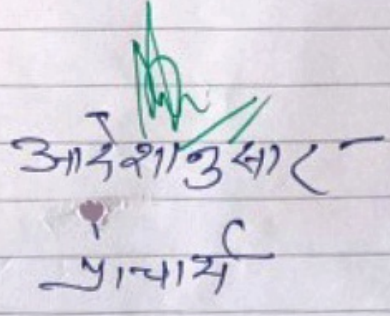 आदेशानुसार
प्राचार्य